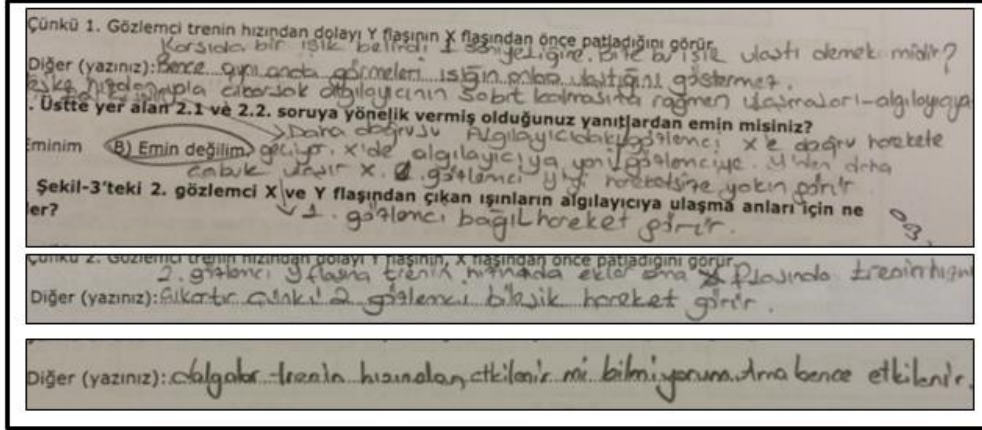 Çünkü 1. Gözlemci trenin hızından dolayı Y flaşının X flaşından önce patladığını görür.
Karşıda bir ışık belirdi 1 saniyeliğine. bize bu ışık ulaştı demek midir?
Diğer (yazınız): Bence aynı anda görmeleri ışığın onlara ulaştığını göstermez.
hızlarıyla algılayıcının sabit kalmasına rağmen ulaşmaları-algılayıcıya
. Üstte yer alan 2.1 ve 2.2. soruya yönelik vermiş olduğunuz yanıtlardan emin misiniz?
Daha doğrusu Algılayıcıdaki gözlemci X'e doğru harekete
Eminim B) Emin değilim geçiyor. X'de algılayıcıya yani gözlemciye. Y'den daha
çabuk ulaşır X. 2. gözlemci Y'yi hareketsize yakın görür
Şekil-3'teki 2. gözlemci X ve Y flaşından çıkan ışınların algılayıcıya ulaşma anları için ne
ler?
1. gözlemci bağıl hareket görür.
Çünkü 2. Gözlemci trenin hızından dolayı Y flaşının, X flaşından önce patladığını görür.
2. gözlemci Y flaşına trenin hızınıda ekler ama X flaşında trenin hızını
Diğer (yazınız): Çıkartır çünkü 2 gözlemci bileşik hareket görür.
Diğer (yazınız): dalgalar trenin hızından etkilenir mi bilmiyorum. Ama bence etkilenir.